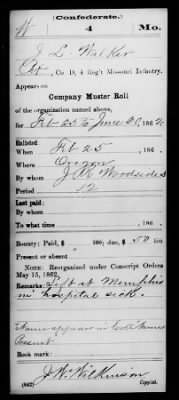 (Confederate.)
W 4 Mo.
J L. Walker
Pvt, Co D, 4 Reg't Missouri Infantry.
Appears on
Company Muster Roll
of the organization named above,
for Feb 25 to June 30, 1862.
Enlisted:
When Feb 25, 186 .
Where Oregon
By whom J A Woodsides
Period 12
Last paid:
By whom
To what time , 186 .
Bounty: Paid, $ 100; due, $ 50 100
Present or absent
NOTE: Reorganized under Conscript Orders
May 15, 1862.
Remarks: Left at Memphis
in hospital sick.
Name appears in
Book mark:
J. W. Wilkinson
(662) Copyist.